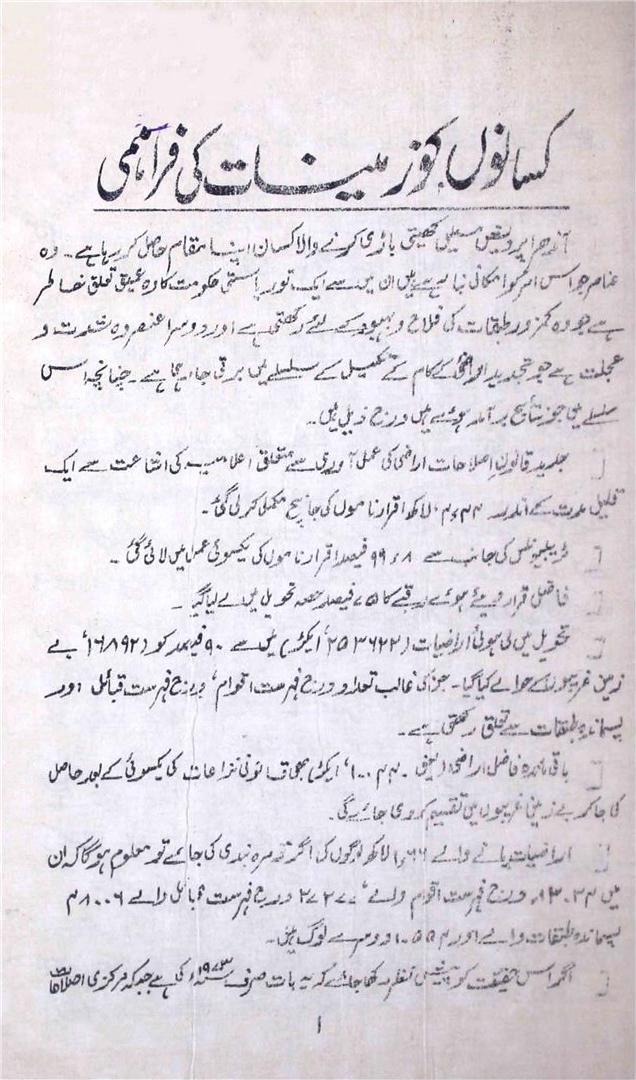 کسانوں کو زمینات کی فراہمی
آندھرا پردیش میں کھیتی باڑی کرنے والا کسان اپنا مقام حاصل کر رہا ہے۔ وہ
عناصر جو اس امر کو امکانی بنا رہے ہیں ان میں سے ایک تو ریاستی حکومت کا وہ عمیق تعلق خاطر
ہے جو وہ کمزور طبقات کی فلاح و بہبود کے لئے رکھتی ہے اور دوسرا عنصر وہ شدت و
عجلت ہے جو تحدید اراضی کے کام کے تکمیل کے سلسلے میں برتی جا رہی ہے۔ چنانچہ اس
سلسلے میں جو نتائج برآمد ہوئے ہیں درج ذیل ہیں۔
جدید قانون اصلاحات اراضی کی عمل آوری سے متعلق اعلامیہ کی اشاعت سے ایک
قلیل مدت کے اندر ۴٫۴۳ لاکھ اقرار ناموں کی جانچ مکمل کر لی گئی۔
ٹریبیونلس کی جانب سے ۹۹٫۸ فیصد اقرار ناموں کی یکسوئی عمل میں لائی گئی۔
فاضل قرار دیئے ہوئے رقبے کا ۷۵ فیصد حصہ تحویل میں لے لیا گیا۔
تحویل میں لی ہوئی اراضیات (۲۵۳۶۲۲ ایکڑ) میں سے ۹۰ فیصد کو (۱۶۸۹۲) بے
زمین غریبوں کے حوالے کیا گیا۔ جن کی غالب تعداد درج فہرست اقوام، درج فہرست قبائل اور
پسماندہ طبقات سے تعلق رکھتی ہے۔
باقی ماندہ فاضل اراضی (یعنی ایکڑ) قانونی نزاعات کی یکسوئی کے بعد حاصل
کی جا کر بے زمین غریبوں میں تقسیم کر دی جائے گی۔
اراضیات پانے والے ۱٫۶۶ لاکھ لوگوں کی اگر زمرہ بندی کی جائے تو معلوم ہوگا کہ ان
میں درج فہرست اقوام والے، درج فہرست قبائل والے
پسماندہ طبقات والے اور دوسرے لوگ ہیں۔
اگر اس حقیقت کو پیش نظر رکھا جائے کہ یہ بات صرف ۱۹۷۳ء کی ہے جبکہ مرکزی اصلاحات
۱